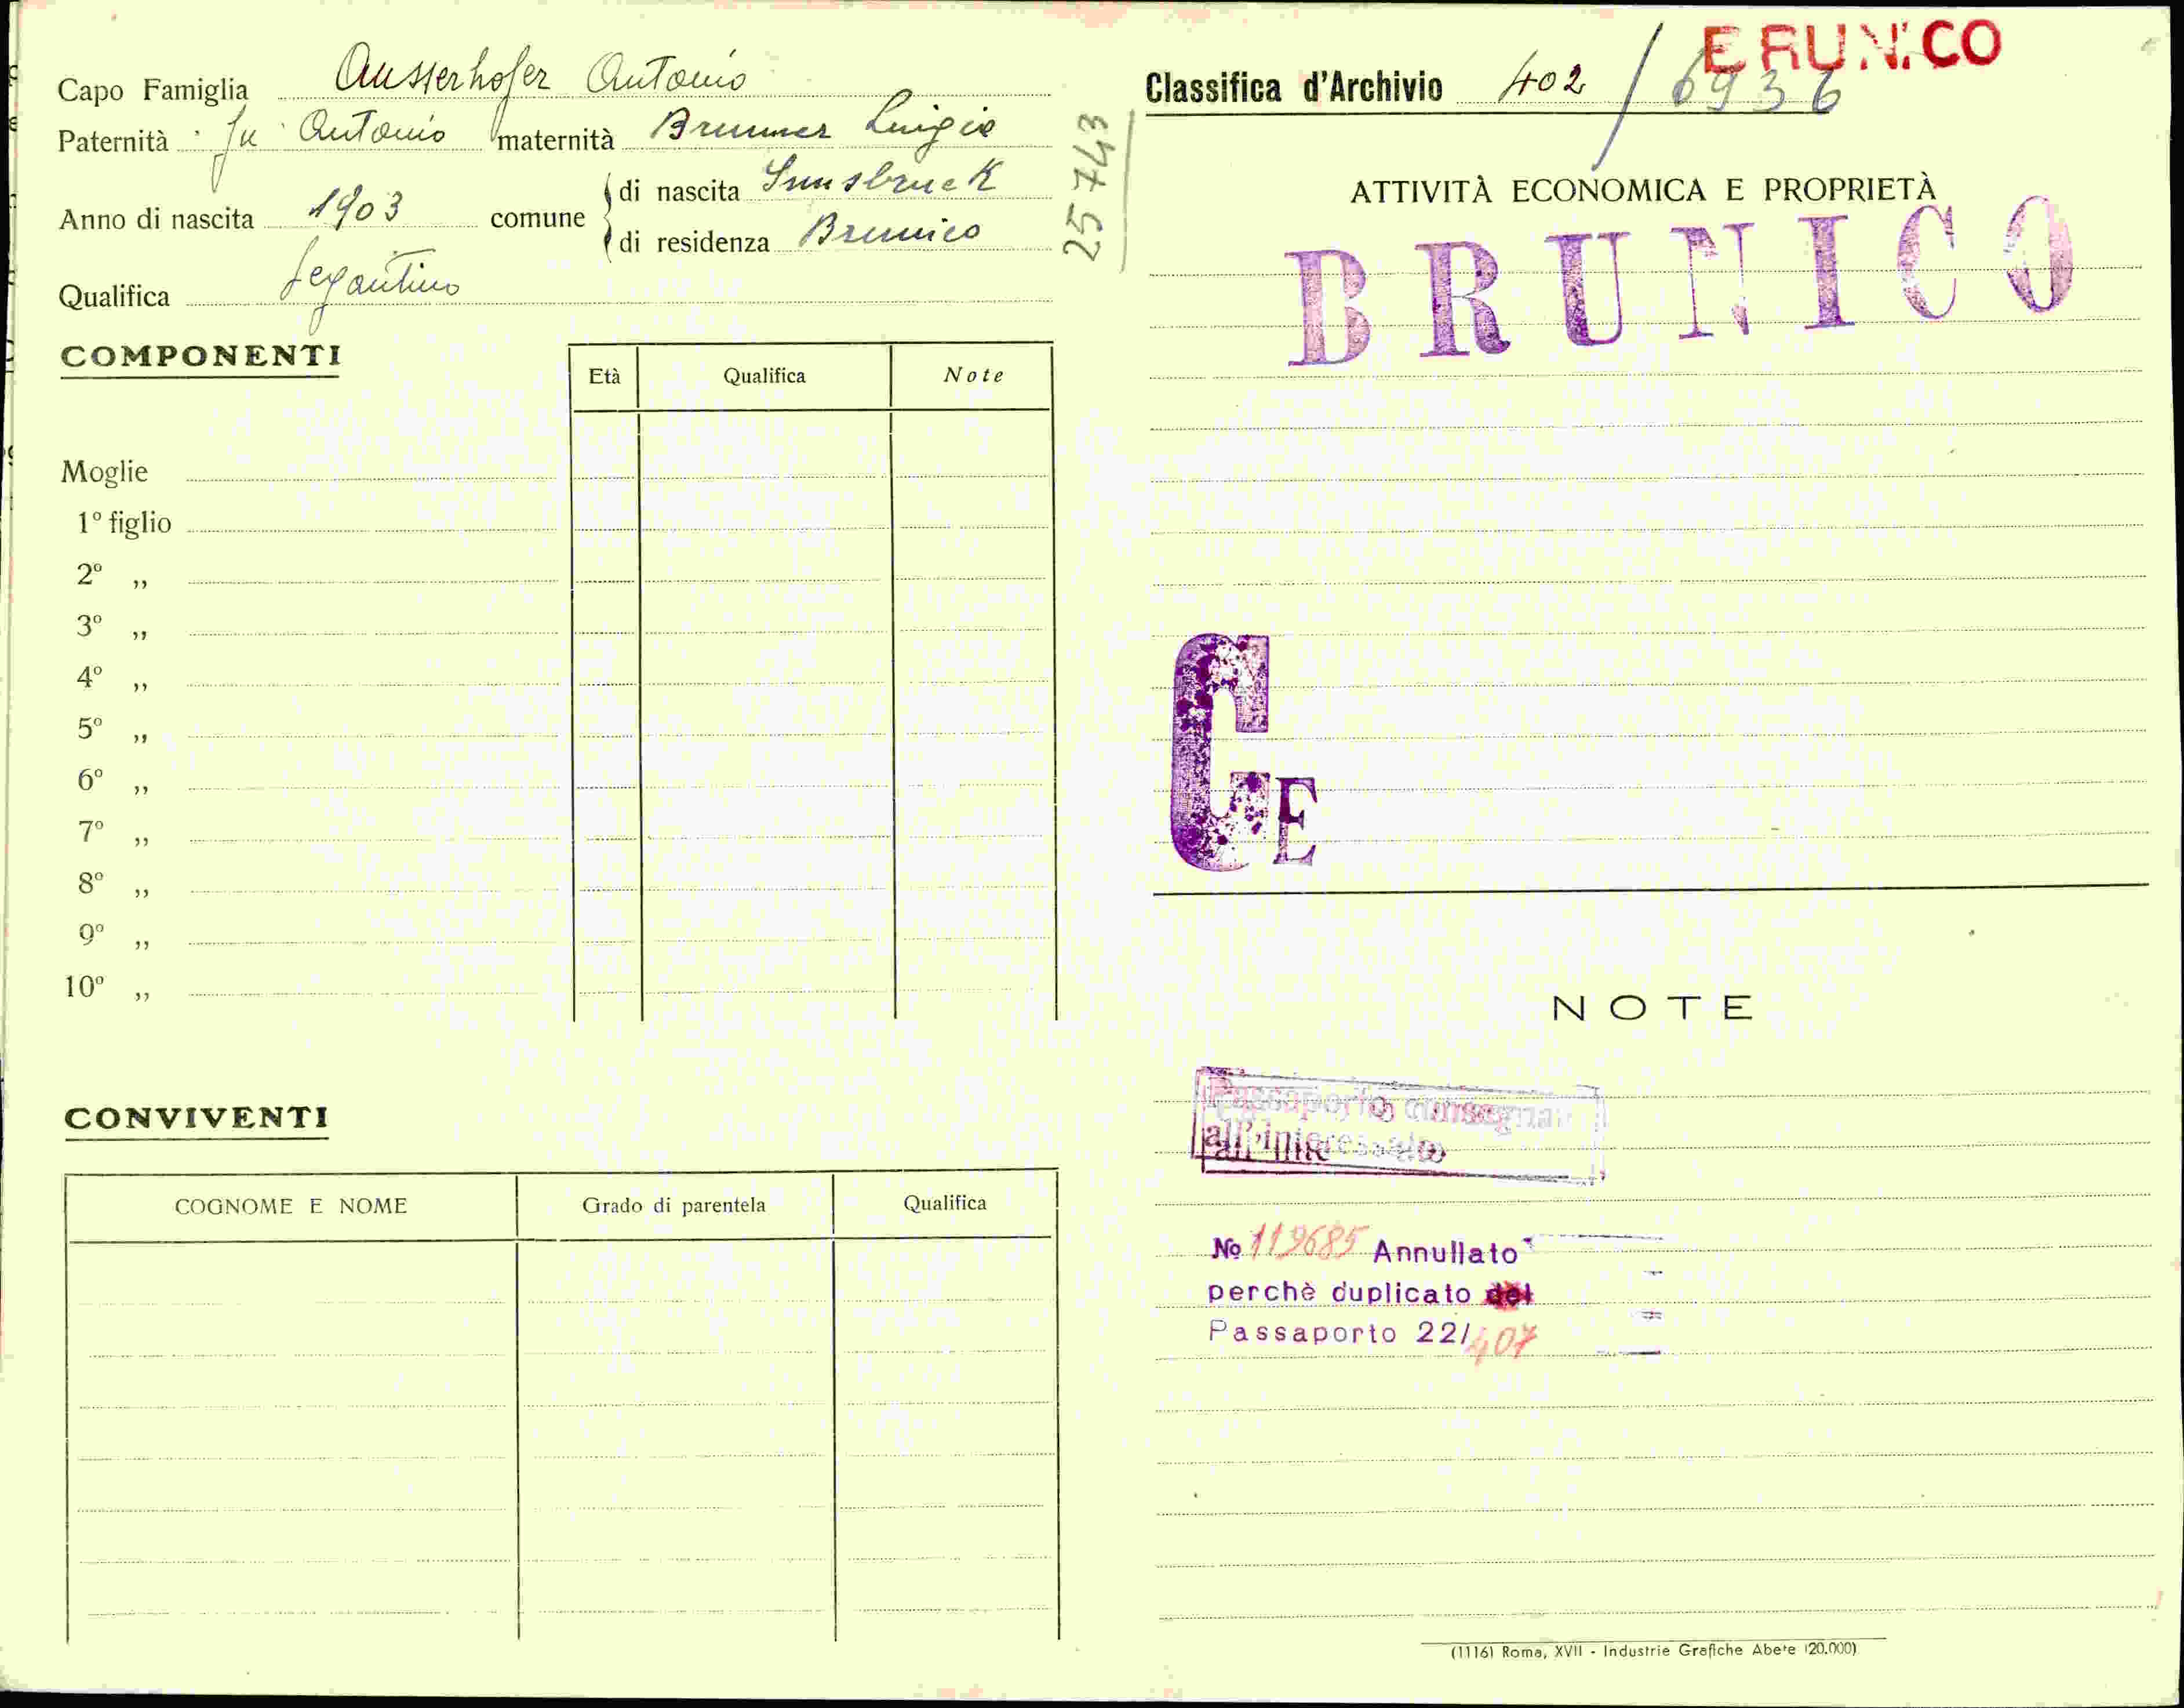 Capo Famiglia Ausserhofer Antonio
Paternità fu Antonio maternità Brunner Luigia
Anno di nascita 1903 comune di nascita Innsbruck
di residenza Brunico
Qualifica Segantino
25743
COMPONENTI
Età Qualifica Note
Moglie
1º figlio
2º „
3º „
4º „
5º „
6º „
7º „
8º „
9º „
10º „
CONVIVENTI
COGNOME E NOME Grado di parentela Qualifica
BRUNICO
Classifica d'Archivio 402 / 6936
ATTIVITÀ ECONOMICA E PROPRIETÀ
BRUNICO
GE
NOTE
Passaporto consegnato
all'interessato
No 119685 Annullato
perchè duplicato del
Passaporto 22/407
(1116) Roma, XVII - Industrie Grafiche Abete (20.000)